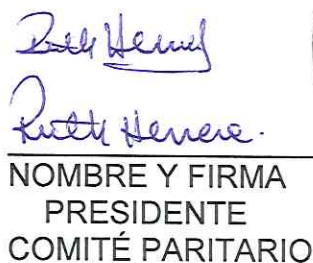 Ruth Herrera.
NOMBRE Y FIRMA
PRESIDENTE
COMITÉ PARITARIO